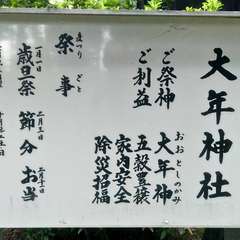 大年神社
ご祭神
大年神
おおとしのかみ
ご利益
五穀豊穣
家内安全
除災招福
祭事
まつりごと
一月一日
歳旦祭
二月三日
節分
お当